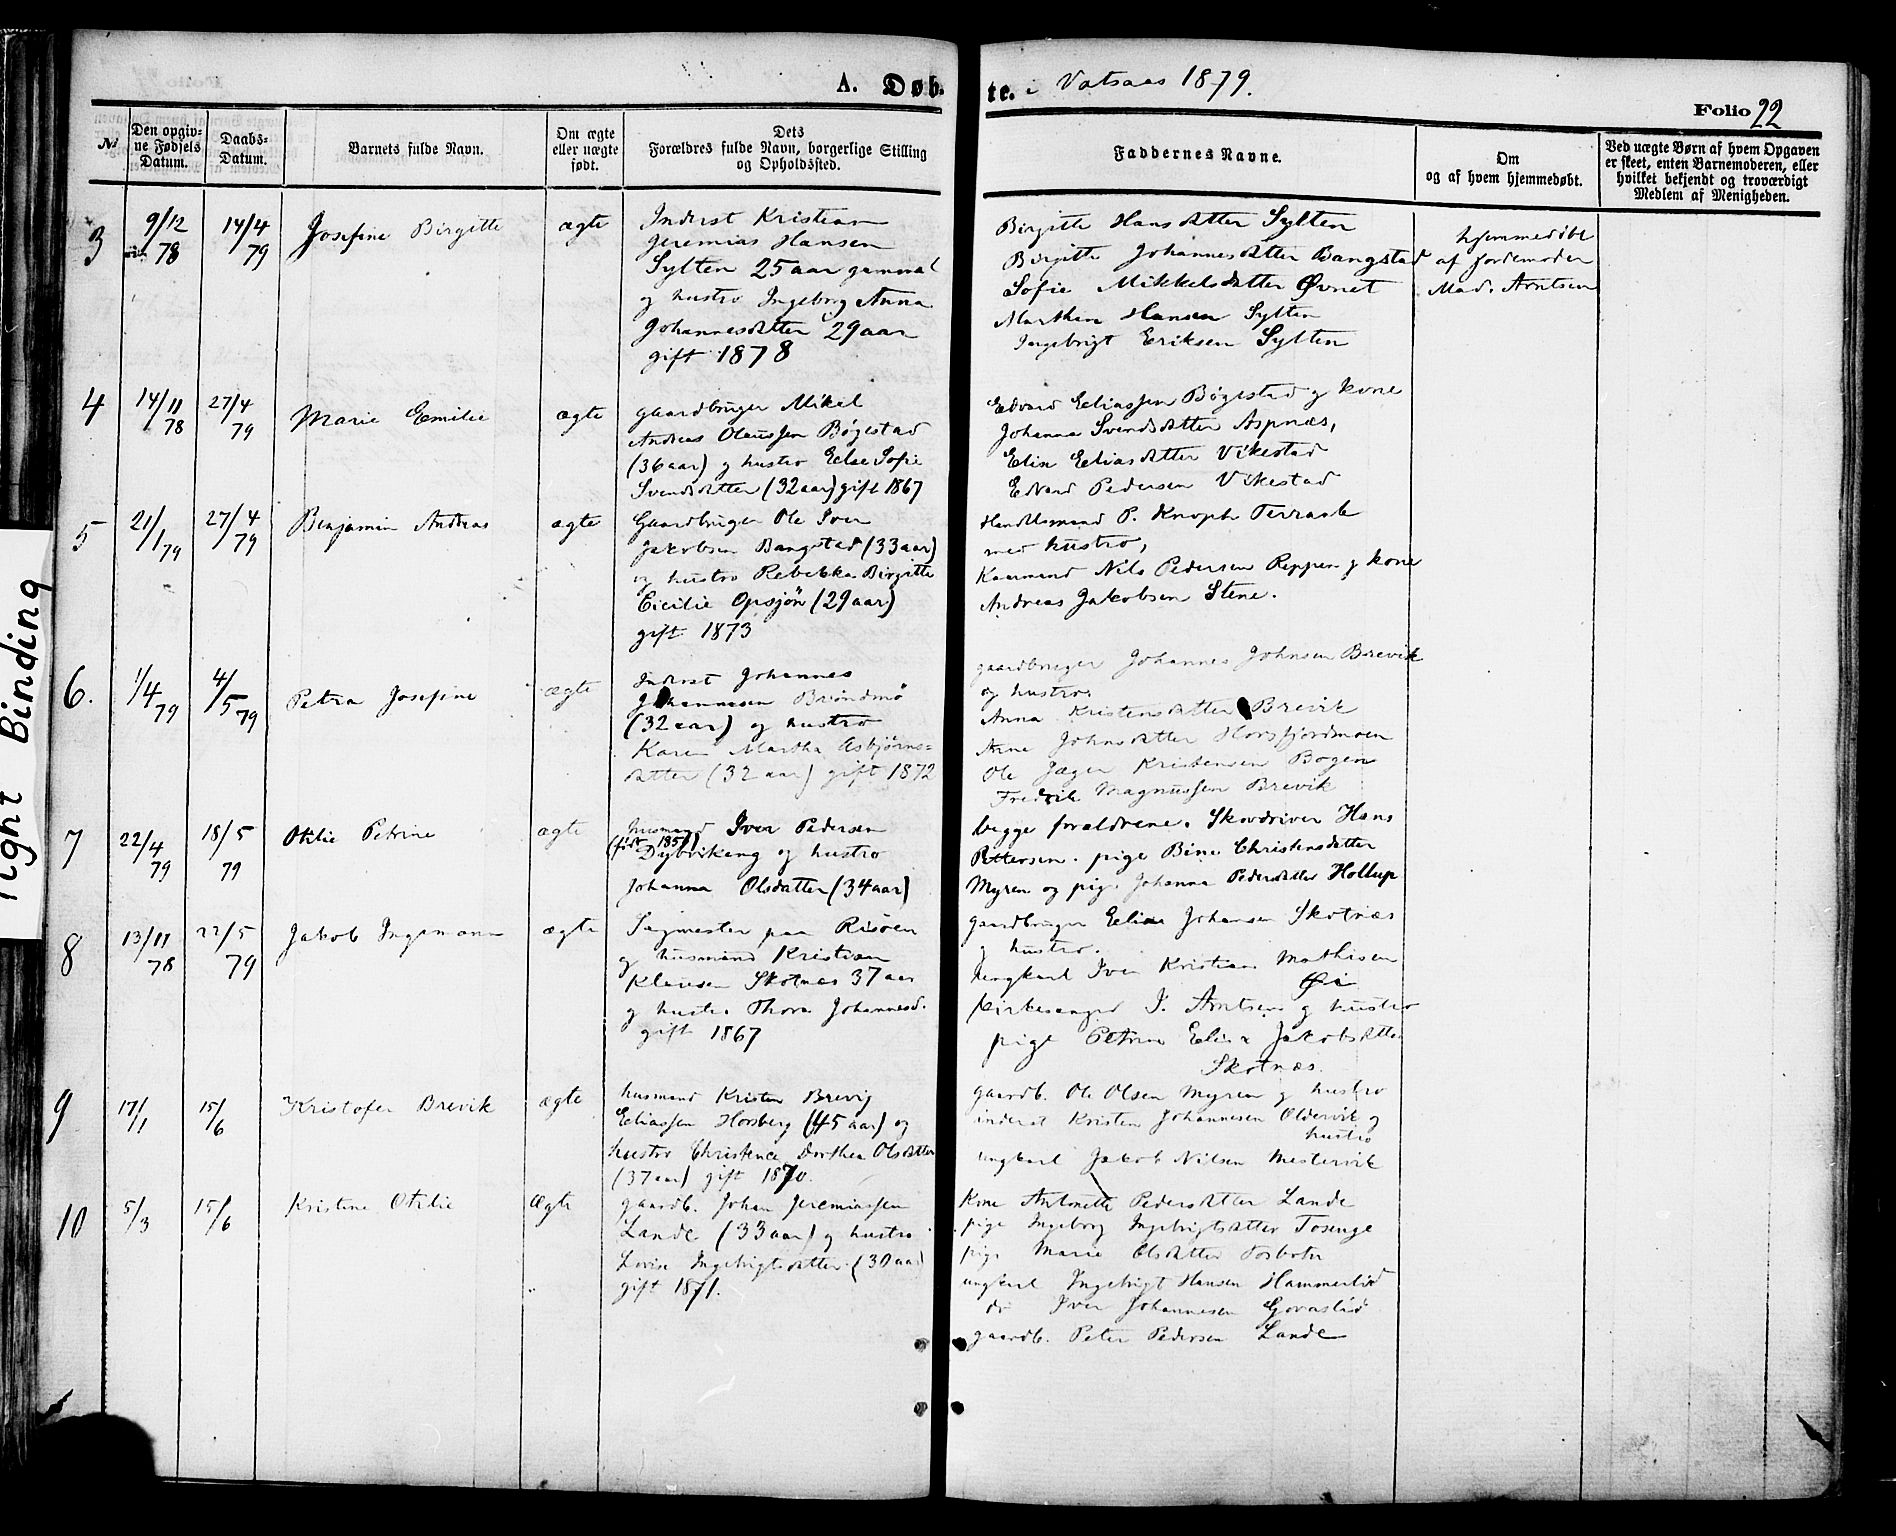 A. Døb-
te. i Vatsaas 1879.
Folio 22
№
Den opgiv-
ne Fødsels
Datum.
Daabs-
Datum.
Barnets fulde Navn.
Om ægte
eller uægte
født.
Dets
Forældres fulde Navn, borgerlige Stilling
og Opholdssted.
Faddernes Navne.
Om
og af hvem hjemmedøbt.
Ved uægte Børn af hvem Opgaven
er skeet, enten Barnemoderen, eller
hvilket bekjendt og troværdigt
Medlem af Menigheden.
3
9/12
78
14/4
79
Josefine Birgitte
ægte
Inderst Kristian
Jeremias Hansen
Sylten 25 aar gammal
og hustro Ingeborg Anna
Johannesdatter 29 aar
gift 1878
Birgitte Hansdatter Sylten
Birgitte Johannesdatter Bangstad
Sofie Mikkelsdatter Øvnet
Marthin Hansen Sylten
Ingebrigt Eriksen Sylten
hjemmedøbt
af Jordemoder
Mad. Arntsen
4
14/11
78
27/4
79
Marie Emilie
ægte
gaardbruger Mikal
Andreas Olaussen Bøgestad
(36 aar) og hustro Else Sofie
Svendsdatter (32 aar) gift 1867
Edvard Eliassen Bøgestad g kone
Johanna Svendsdatter Aspnæs,
Elin Eliasdatter Vikestad
Edvard Pedersen Vikestad
5
21/1 79
27/4
79
Benjamin Andreas
ægte
Gaardbruger Ole Iver
Jakobsen Bangstad (33 aar)
og hustro Rebekka Birgitte
Cicilie Opsjøn (29 aar)
gift 1873
Handelsmand P. Knoph Terraak
med hustro,
Kaarmand Nils Pedersen Reppen g kone
Andreas Jakobsen Stene.
6.
1/4 79
4/5 79
Petra Josefine
ægte
Inderst Johannes
Johannesen Brøndmø
(32 aar) og hustro
Karen Martha Asbjørns=
datter (32 aar) gift 1872
gaardbruger Johannes Johnsen Brevik
og hustro.
Anna Kristensdatter Brevik
Anne Johnsdatter Horsfjordmoen
Ole Jæger Kristensen Bogen
Fredrik Magnussen Brevik
7
22/4
79
18/5
79
Otilie Petrine
ægte
husmand Iver Pedersen
Dybvikeng og hustro
Johanna Olsdatter (34 aar)
begge forældrene. Skovdriver Hans
Pettersen. pige Bine Christensdatter
Myren og pige Johanna Pedersdatter Hollup
8
13/11
78
22/5
79
Jakob Ingemann
ægte
Sagmester paa Risøen
g husmand Kristian
Klausen Skotnæs 37 aar
g hustro Thora Johannesd.
gift 1867
gaardbruger Elias Johansen Skotnæs
g hustro.
ungkarl Iver Kristian Mathisen
Øie
Kirkesanger I. Arntsen g hustro
pige Petrine Elisa Jakobsdatter
Skotnæs.
9
17/1
15/6
Kristofer Brevik
ægte
husmand Kristen Brevig
Eliassen Horsberg (45 aar) og
hustro Christence Dorthea Olsdatter
(37 aar) gift 1870.
gaardb. Ole Olsen Myren g hustro
inderst Kristen Johannesen Oldervik g
hustro
ungkarl Jakob Nilsen Mestervik
10
5/3
15/6
Kristine Otilie
Ægte
gaardb. Johan Jeremiassen
Lande (33 aar) g hustro
Lovise Ingebrigtsdatter (30 aar)
gift 1871.
Kone Antonette Pedersdatter Lande
pige Ingeborg Ingebrigtsdatter Tosenge
pige Marie Olsdatter Tosboten
ungkarl Ingebrigt Hansen Hammerlid
do Iver Johannesen Govaslid
gaardb. Peter Pedersen Lande
Tight Binding